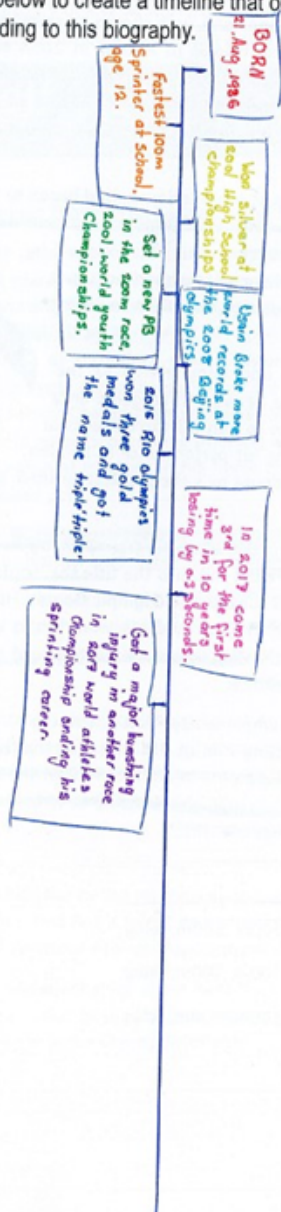 below to create a timeline that o
ding to this biography.
BORN
21.Aug.1986
Fastest 100m
Sprinter at school.
age 12.
Won silver at
2001 High school
championships
Set a new PB
in the 200m race,
2001.world youth
Championships.
Usain Broke more
world records at
the 2008 Beijing
olympics
2016 Rio olympics
won three gold
medals and got
the name triple'triple.
In 2017 come
3rd for the first
time in 10 years
losing by 0.3 seconds.
Got a major
injury in another race
in 2017 world athletics
championship ending his
sprinting career.